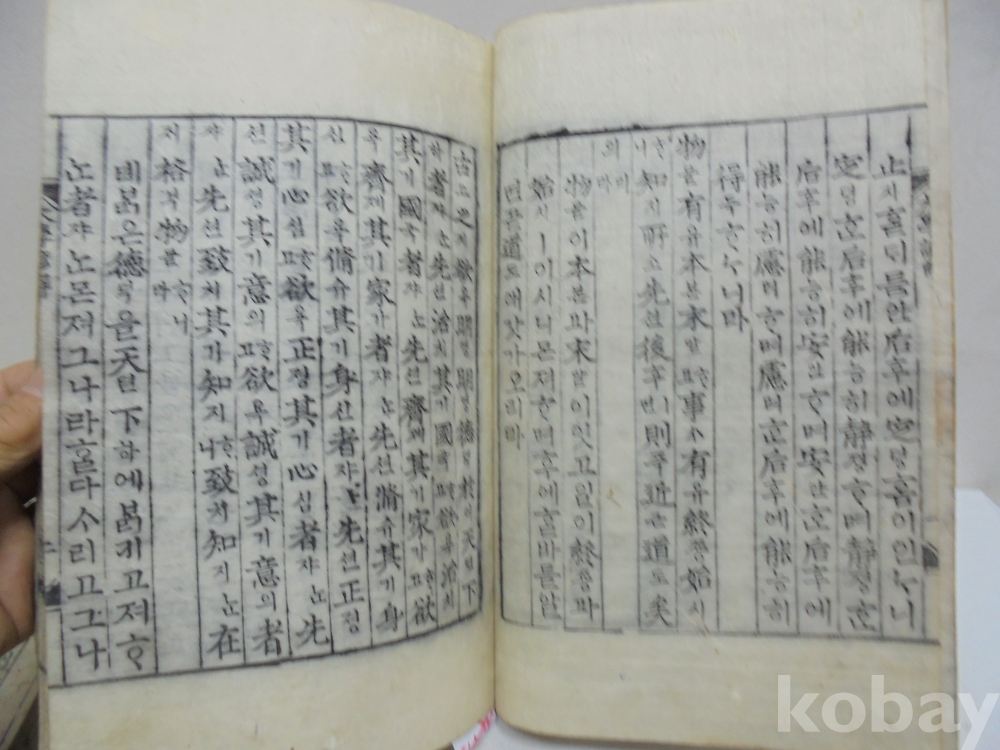 止지ᄒᆞᆯᄃᆡ를안后후에定뎡홈이인ᄂᆞ니
定뎡ᄒᆞᆫ后후에能능히靜졍ᄒᆞ며靜졍ᄒᆞᆫ
后후에能능히安안ᄒᆞ며安안ᄒᆞᆫ后후에
能능히慮려ᄒᆞ며慮려ᄒᆞᆫ后후에能능히
得득ᄒᆞᄂᆞ니라
物믈有유本본末말ᄒᆞ고事ᄉᆞ有유終죵始시
ᄒᆞ니知지所소先션後후ㅣ면則즉近근道도矣
의리라
物믈이本본과末말이잇고일이終죵과
始시ㅣ이시니몬져ᄒᆞ며후에홀바를알
면道도애갓가오리라
古고之지欲욕明명明명德덕於어天텬下
하者쟈ᄂᆞᆫ先션治치其기國국ᄒᆞ고欲욕治치
其기國국者쟈ᄂᆞᆫ先션齊졔其기家가ᄒᆞ고欲
욕齊졔其기家가者쟈ᄂᆞᆫ先션脩슈其기身
신ᄒᆞ고欲욕脩슈其기身신者쟈ᄂᆞᆫ先션正졍
其기心심ᄒᆞ고欲욕正졍其기心심者쟈ᄂᆞᆫ先
션誠셩其기意의ᄒᆞ고欲욕誠셩其기意의者
쟈ᄂᆞᆫ先션致치其기知지ᄒᆞ니致치知지ᄂᆞᆫ在
ᄌᆡ格격物믈ᄒᆞ니라
녜ᄇᆞᆰ은德덕을天텬下하에ᄇᆞᆰ키고져ᄒᆞ
ᄂᆞᆫ者쟈ᄂᆞᆫ몬져그나라ᄒᆞᆯ다ᄉᆞ리고그나
kobay